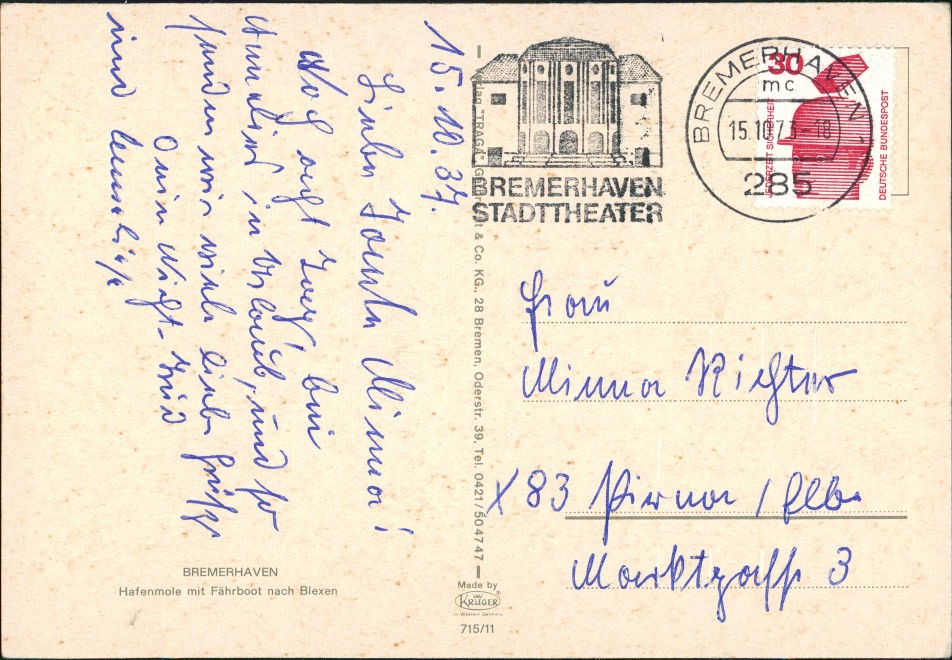 15. 10. 37.
Liebe Tante Minna!
Noch acht bin
in Urlaub, und so
senden wir viele liebe Grüße
Deine
und
BREMERHAVEN
Hafenmole mit Fährboot nach Blexen
"TRAGA" & Co. KG., 28 Bremen, Oderstr. 39, Tel. 0421/504747
Made by
KRÜGER
in Western Germany
715/11
BREMERHAVEN
STADTTHEATER
BREMERHAVEN 1
mc
15.10.73-18
285
30
JEDERZEIT SICHERHEIT
DEUTSCHE BUNDESPOST
Frau
Minna Richter
X 83 Pirna / Elbe
Marktgasse 3